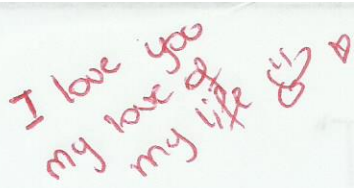 I love you
my love of
my life